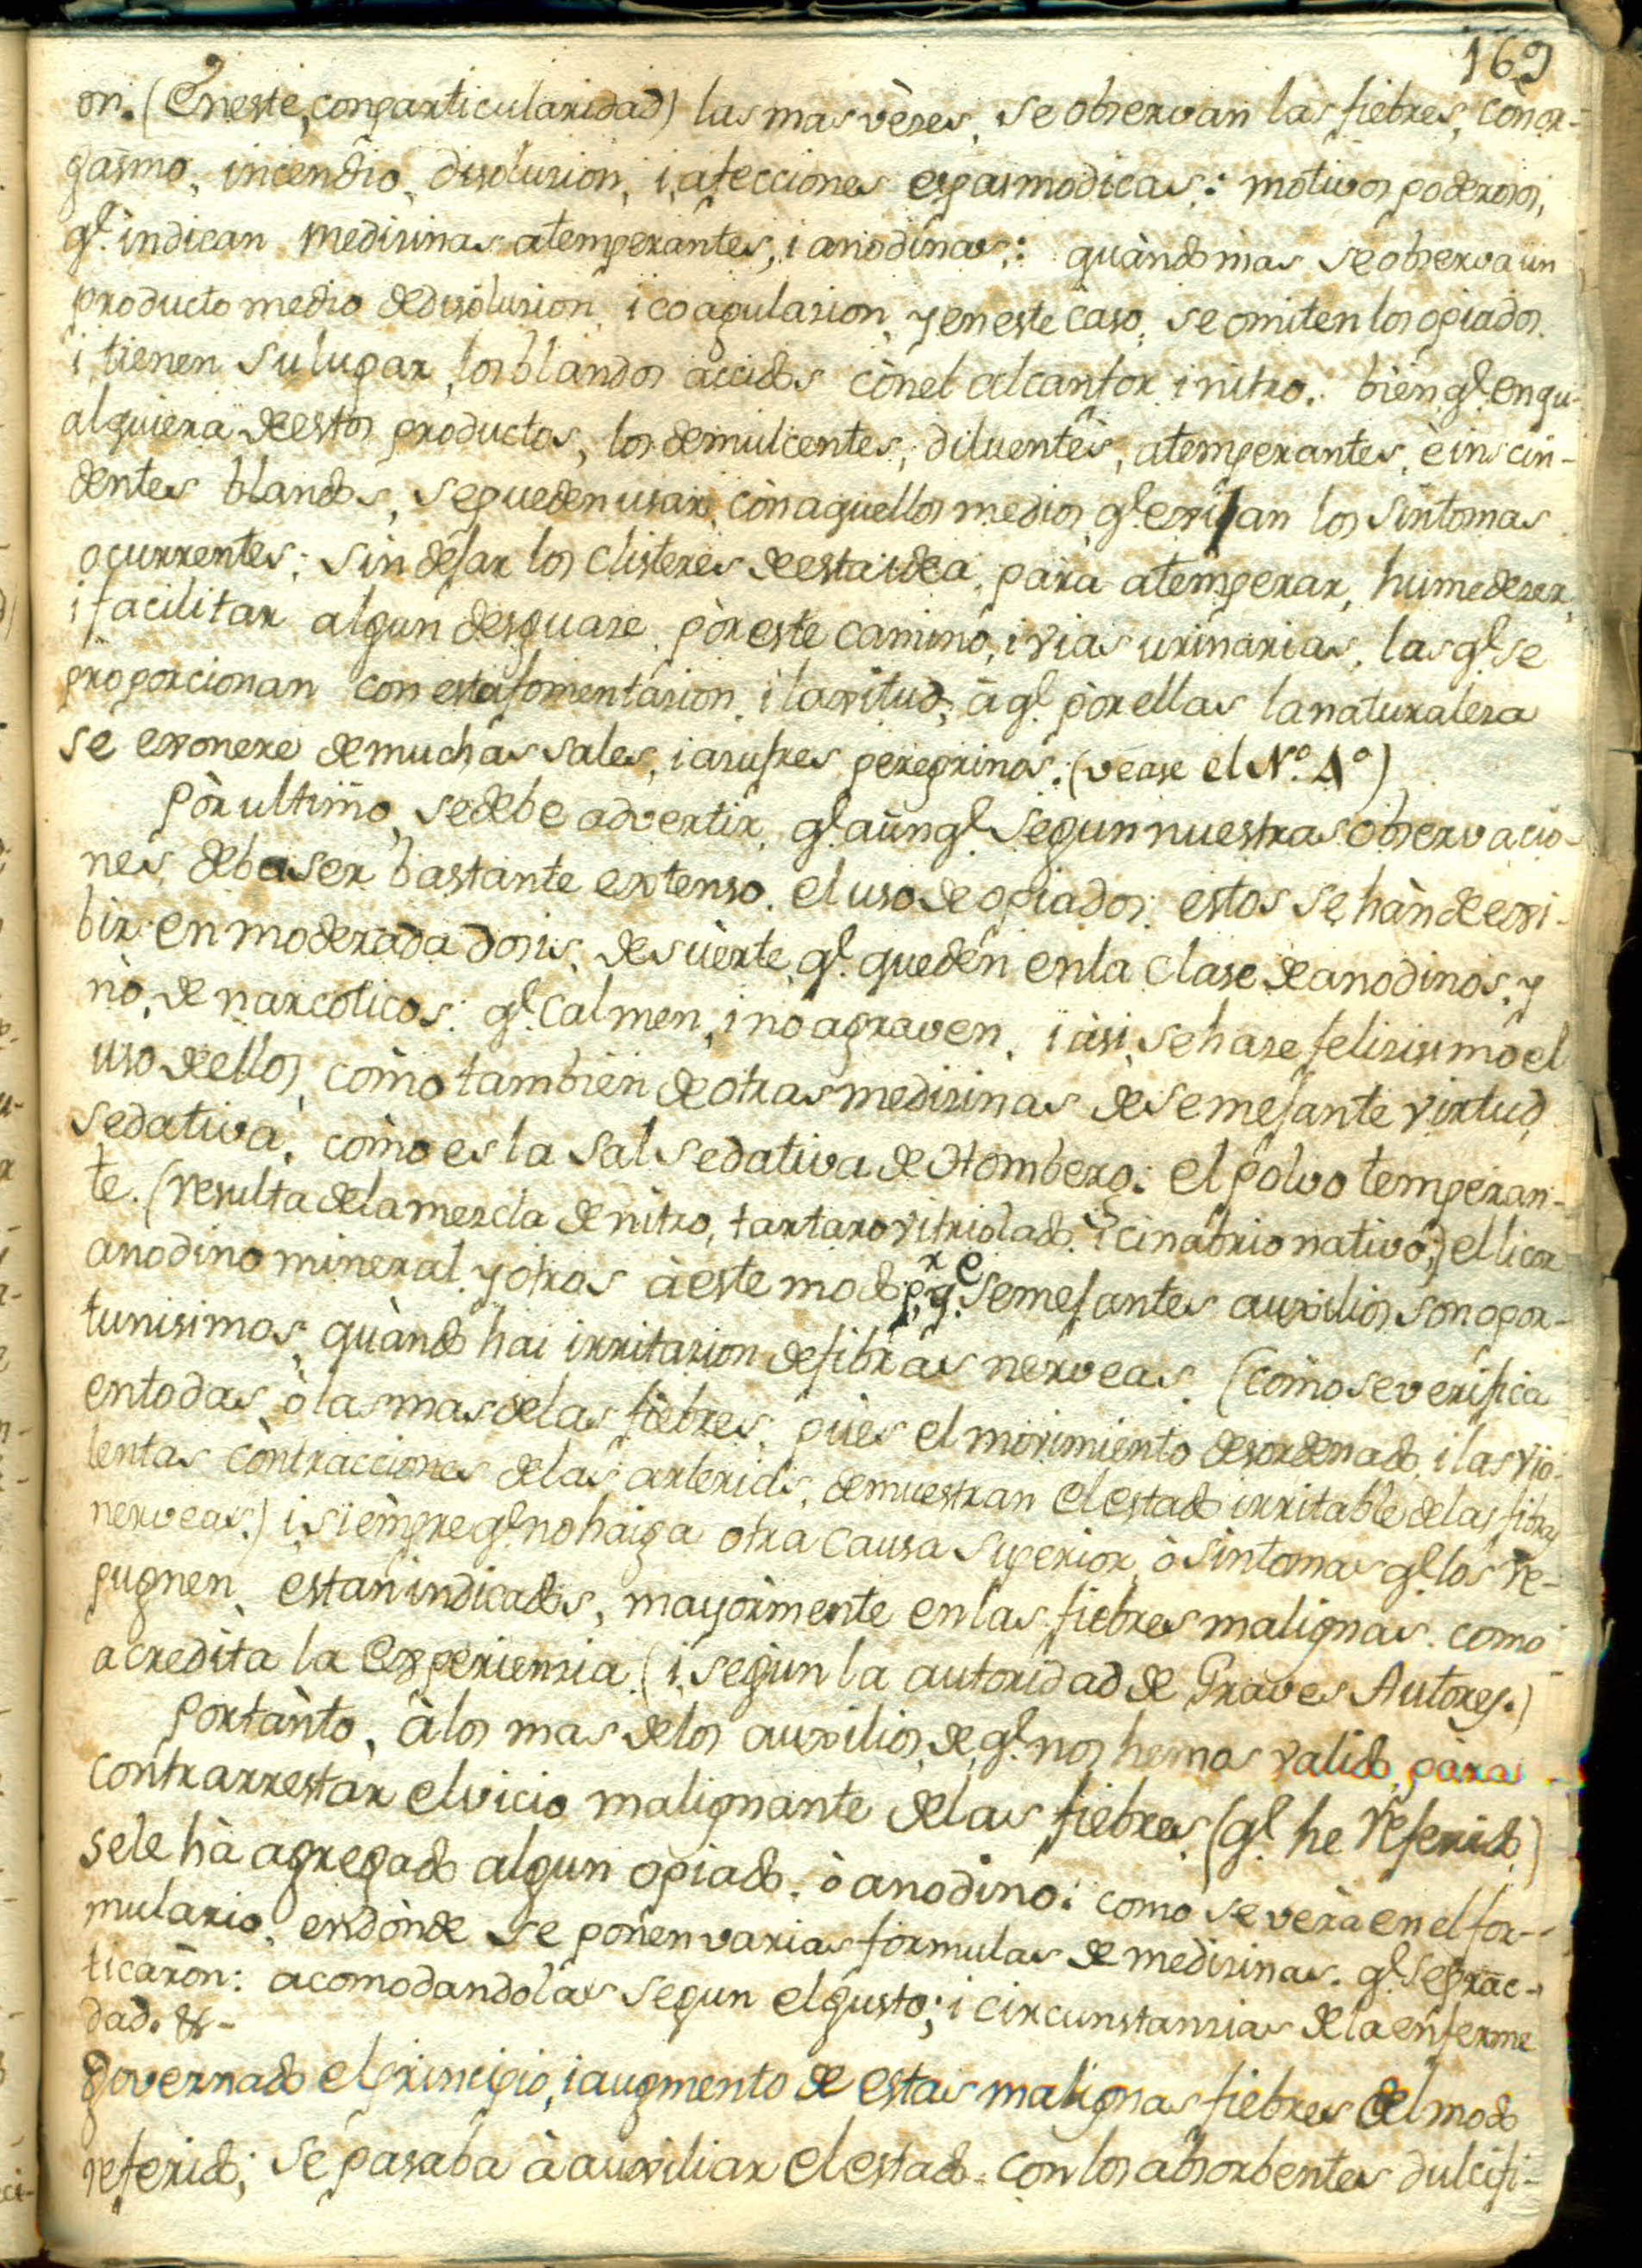 169
on. (En este, con particularidad) las mas vèzes, se observan las fiebres, con or-
gasmo, incendio, disoluzion, i afecciones espasmodicas: motivos poderosos,
q.ͤ indican medizinas atemperantes, i anodinas: quàndo mas se observa un
producto medio de disoluzion i coagulazion, y en este caso, se omiten los opiados
i tienen su lugar, los blandos accidos còn el alcanfor i nitro. bièn q.ͤ en qu-
alquiera de estos productos, los demulcentes, diluentes, atemperantes, è inscin-
dentes blandos, se pueden usar, con aquellos medios q.ͤ exijan los sintomas
ocurrentes; sin dejar los clisteres de esta idea, para atemperar, humedezer,
i facilitar algun desguaze, pòr este camino, i vias urinarias, las q.ͤ se
proporcionan con esta fomentazion, i laxitud; à q.ͤ pòr ellas la naturaleza
se exonere de muchas sales, i azufres peregrinos. (vease el N.º 4º)
Pòr ultimo, se debe advertir, q.ͤ aùn q.ͤ segun nuestras observacio-
nes, deba ser bastante extenso, el uso de opiados; estos se hàn de exi-
bir en moderada dosis, de suèrte q.ͤ queden en la clase de anodinos, y
nò, de narcoticos: q.ͤ calmen, i no agraven, i àsi, se haze felizisimo el
uso de ellos, còmo tambièn de otras medizinas de semejante virtud
sedativa, còmo es la sal sedativa de Hombero: el polvo temperan-
te. (resulta de la mezcla de nitro, tartaro vitriolado, i cinabrio nativo;) el licor
anodino mineral, y otros à este modo; p.ʳ q.ͤ semejantes auxilios son opor-
tunisimos, quàndo hai irritazion de fibras nerveas. (còmo se verifica
en todas, ò las mas de las fiebres, puès el movimiento desordenado, i las vio-
lentas còntracciones de las arterias, demuestran el estado irritable de las fibras
nerveas.) i sièmpre q.ͤ no haiga otra causa superior, ò sintomas q.ͤ los re-
pugnen, estan indicados, mayòrmente en las fiebres malignas. como
acredita la experienzia (i segùn la autoridad de Graves Autores.)
Portànto, à los mas de los auxilios, de q.ͤ nos hemos valido, para
contrarrestar el vicio malignante de las fiebres, (q.ͤ he referido)
se le hà agregado algun opiado, ò anodino: como se verà en el for-
mulario, en dònde se ponen varias formulas de medizinas. q.ͤ se prac-
ticaròn: acomodandolas segun el gusto; i circunstanzias de la enferme
dad. &-
Governado el principio, i augmento de estas malignas fiebres del modo
referido; se pasaba à auxiliar el estado con los absorbentes dulcifi-